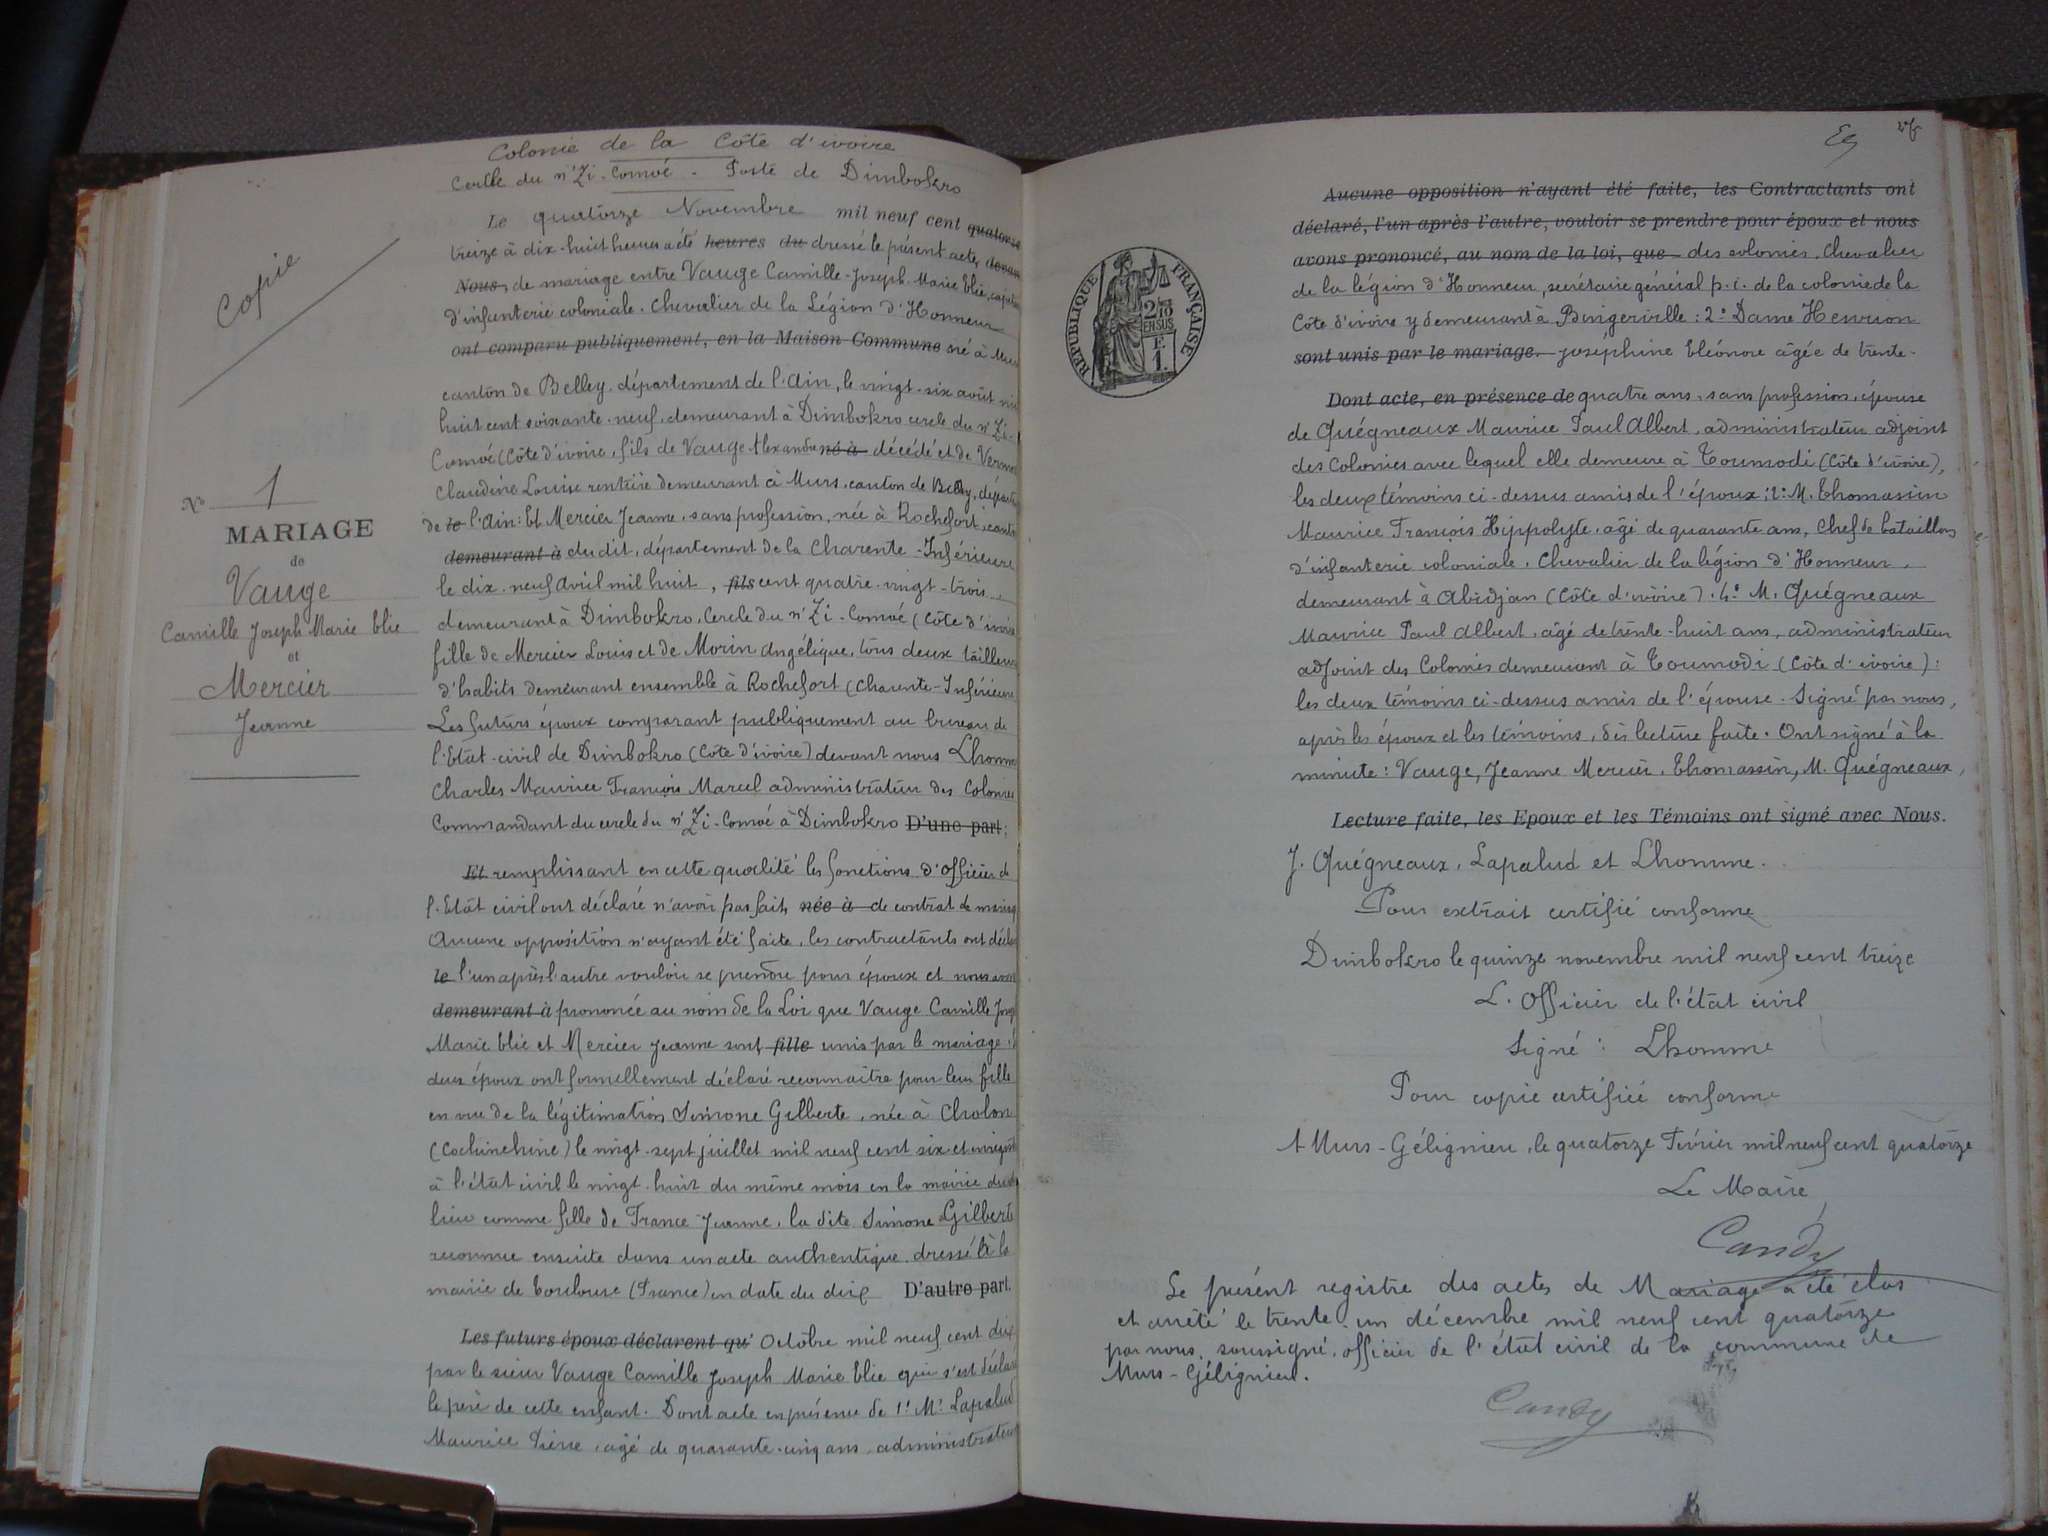 Colonie de la Côte d'ivoire
Cercle du n'Zi-Comoé - Poste de Dimbokro
Copie
Le quatorze Novembre mil neuf cent quatorze
treize à dix-huit heures a été heures du dressé le présent acte, devant
Nous, de mariage entre Vauge Camille-Joseph-Marie Elie, capitaine
d'infanterie coloniale. Chevalier de la Légion d'Honneur
ont comparu publiquement, en la Maison Commune né à Murs
canton de Belley, département de l'Ain, le vingt-six août mil
huit cent soixante-neuf, demeurant à Dimbokro cercle du n'Zi-
Comoé (Côte d'ivoire, fils de Vauge Alexandre né à décédé et de
Claudine Louise rentière demeurant à Murs, canton de Belley, départ
de le l'Ain: Et Mercier Jeanne, sans profession, née à Rochefort, canton
demeurant à du dit, département de la Charente-Inférieure
le dix-neuf avril mil huit, fils cent quatre-vingt-trois
demeurant à Dimbokro, Cercle du n'Zi-Comoé (Côte d'ivoire
fille de Mercier Louis et de Morin Angélique, tous deux tailleurs
d'habits demeurant ensemble à Rochefort (Charente-Inférieure
Les futurs époux comparant publiquement au bureau de
l'Etat-civil de Dimbokro (Côte d'ivoire) devant nous Lhomme
Charles Maurice François Marcel administrateur des Colonies
Commandant du cercle du n'Zi-Comoé à Dimbokro D'une part;
Et remplissant en cette qualité les fonctions d'officier de
l'Etat civil ont déclaré n'avoir pas fait, née à de contrat de mariage
Aucune opposition n'ayant été faite, les contractants ont déclaré
le l'un après l'autre vouloir se prendre pour époux et nous avons
demeurant à prononcé au nom de la Loi que Vauge Camille Joseph
Marie Elie et Mercier Jeanne sont, fille unis par le mariage.
deux époux ont formellement déclaré reconnaître pour leur fille
en vue de la légitimation Simone Gilberte, née à Cholon
(Cochinchine) le vingt-sept juillet mil neuf cent six et enregist
à l'état civil le vingt-huit du même mois en la mairie du dit
lieu comme fille de France Jeanne, la dite Simone Gilberte
reconnue ensuite dans un acte authentique dressé à la
mairie de Toulouse (France) en date du dix D'autre part.
Les futurs époux déclarent qu' Octobre mil neuf cent dix
par le sieur Vauge Camille Joseph Marie Elie qui s'est déclaré
le père de cette enfant. Dont acte en présence de 1º Mr Lapalud
Maurice Pierre, âgé de quarante-cinq ans, administrateur
Nº 1
MARIAGE
de
Vauge
Camille Joseph Marie Elie
et
Mercier
Jeanne
RÉPUBLIQUE FRANÇAISE
2/10 EN SUS
F.
1.
Aucune opposition n'ayant été faite, les Contractants ont
déclaré, l'un après l'autre, vouloir se prendre pour époux et nous
avons prononcé, au nom de la loi, que des colonies, Chevalier
de la légion d'Honneur, secrétaire général p. i. de la colonie de la
Côte d'ivoire y demeurant à Bingerville: 2º Dame Henrion
sont unis par le mariage. Joséphine Eléonore âgée de trente-
Dont acte, en présence de quatre ans, sans profession, épouse
de Quégneaux Maurice Paul Albert, administrateur adjoint
des Colonies avec lequel elle demeure à Toumodi (Côte d'ivoire),
les deux témoins ci-dessus amis de l'époux; M. Thomassin
Maurice François Hippolyte, âgé de quarante ans, Chef de bataillon
d'infanterie coloniale, Chevalier de la légion d'Honneur,
demeurant à Abidjan (Côte d'ivoire). 4º M. Quégneaux
Maurice Paul Albert, âgé de trente-huit ans, administrateur
adjoint des Colonies demeurant à Toumodi (Côte d'ivoire):
les deux témoins ci-dessus amis de l'épouse. Signé par nous,
après les époux et les témoins, dès lecture faite. Ont signé à la
minute: Vauge, Jeanne Mercier, Thomassin, M. Quégneaux,
Lecture faite, les Epoux et les Témoins ont signé avec Nous.
J. Quégneaux, Lapalud et Lhomme.
Pour extrait certifié conforme
Dimbokro le quinze novembre mil neuf cent treize
L'Officier de l'état civil
Signé: Lhomme
Pour copie certifiée conforme
A Murs-Gélignieu, le quatorze Février mil neuf cent quatorze
Le Maire
Candy
Le présent registre des actes de Mariage a été clos
et arrêté le trente-un décembre mil neuf cent quatorze
par nous, soussigné, officier de l'état civil de la commune de
Murs-Gélignieu.
Candy